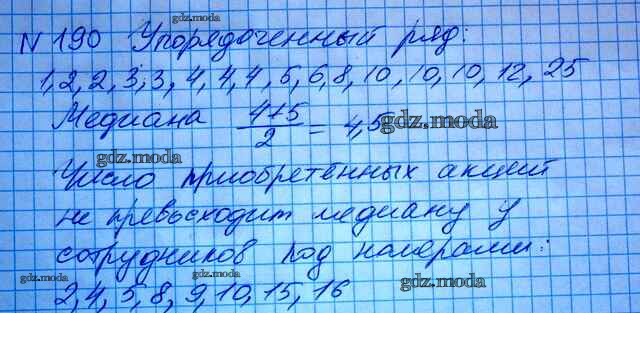 gdz.moda
N 190 Упорядоченный ряд:
gdz.moda
1, 2, 2, 3, 3, 4, 4, 4, 5, 6, 8, 10, 10, 10, 12, 25
Медиана 4+5/2 = 4,5
gdz.moda
gdz.moda
Число приобретённых акций
не превосходит медиану у
сотрудников под номерами:
gdz.moda
gdz.moda
gdz.moda
2, 4, 5, 8, 9, 10, 15, 16